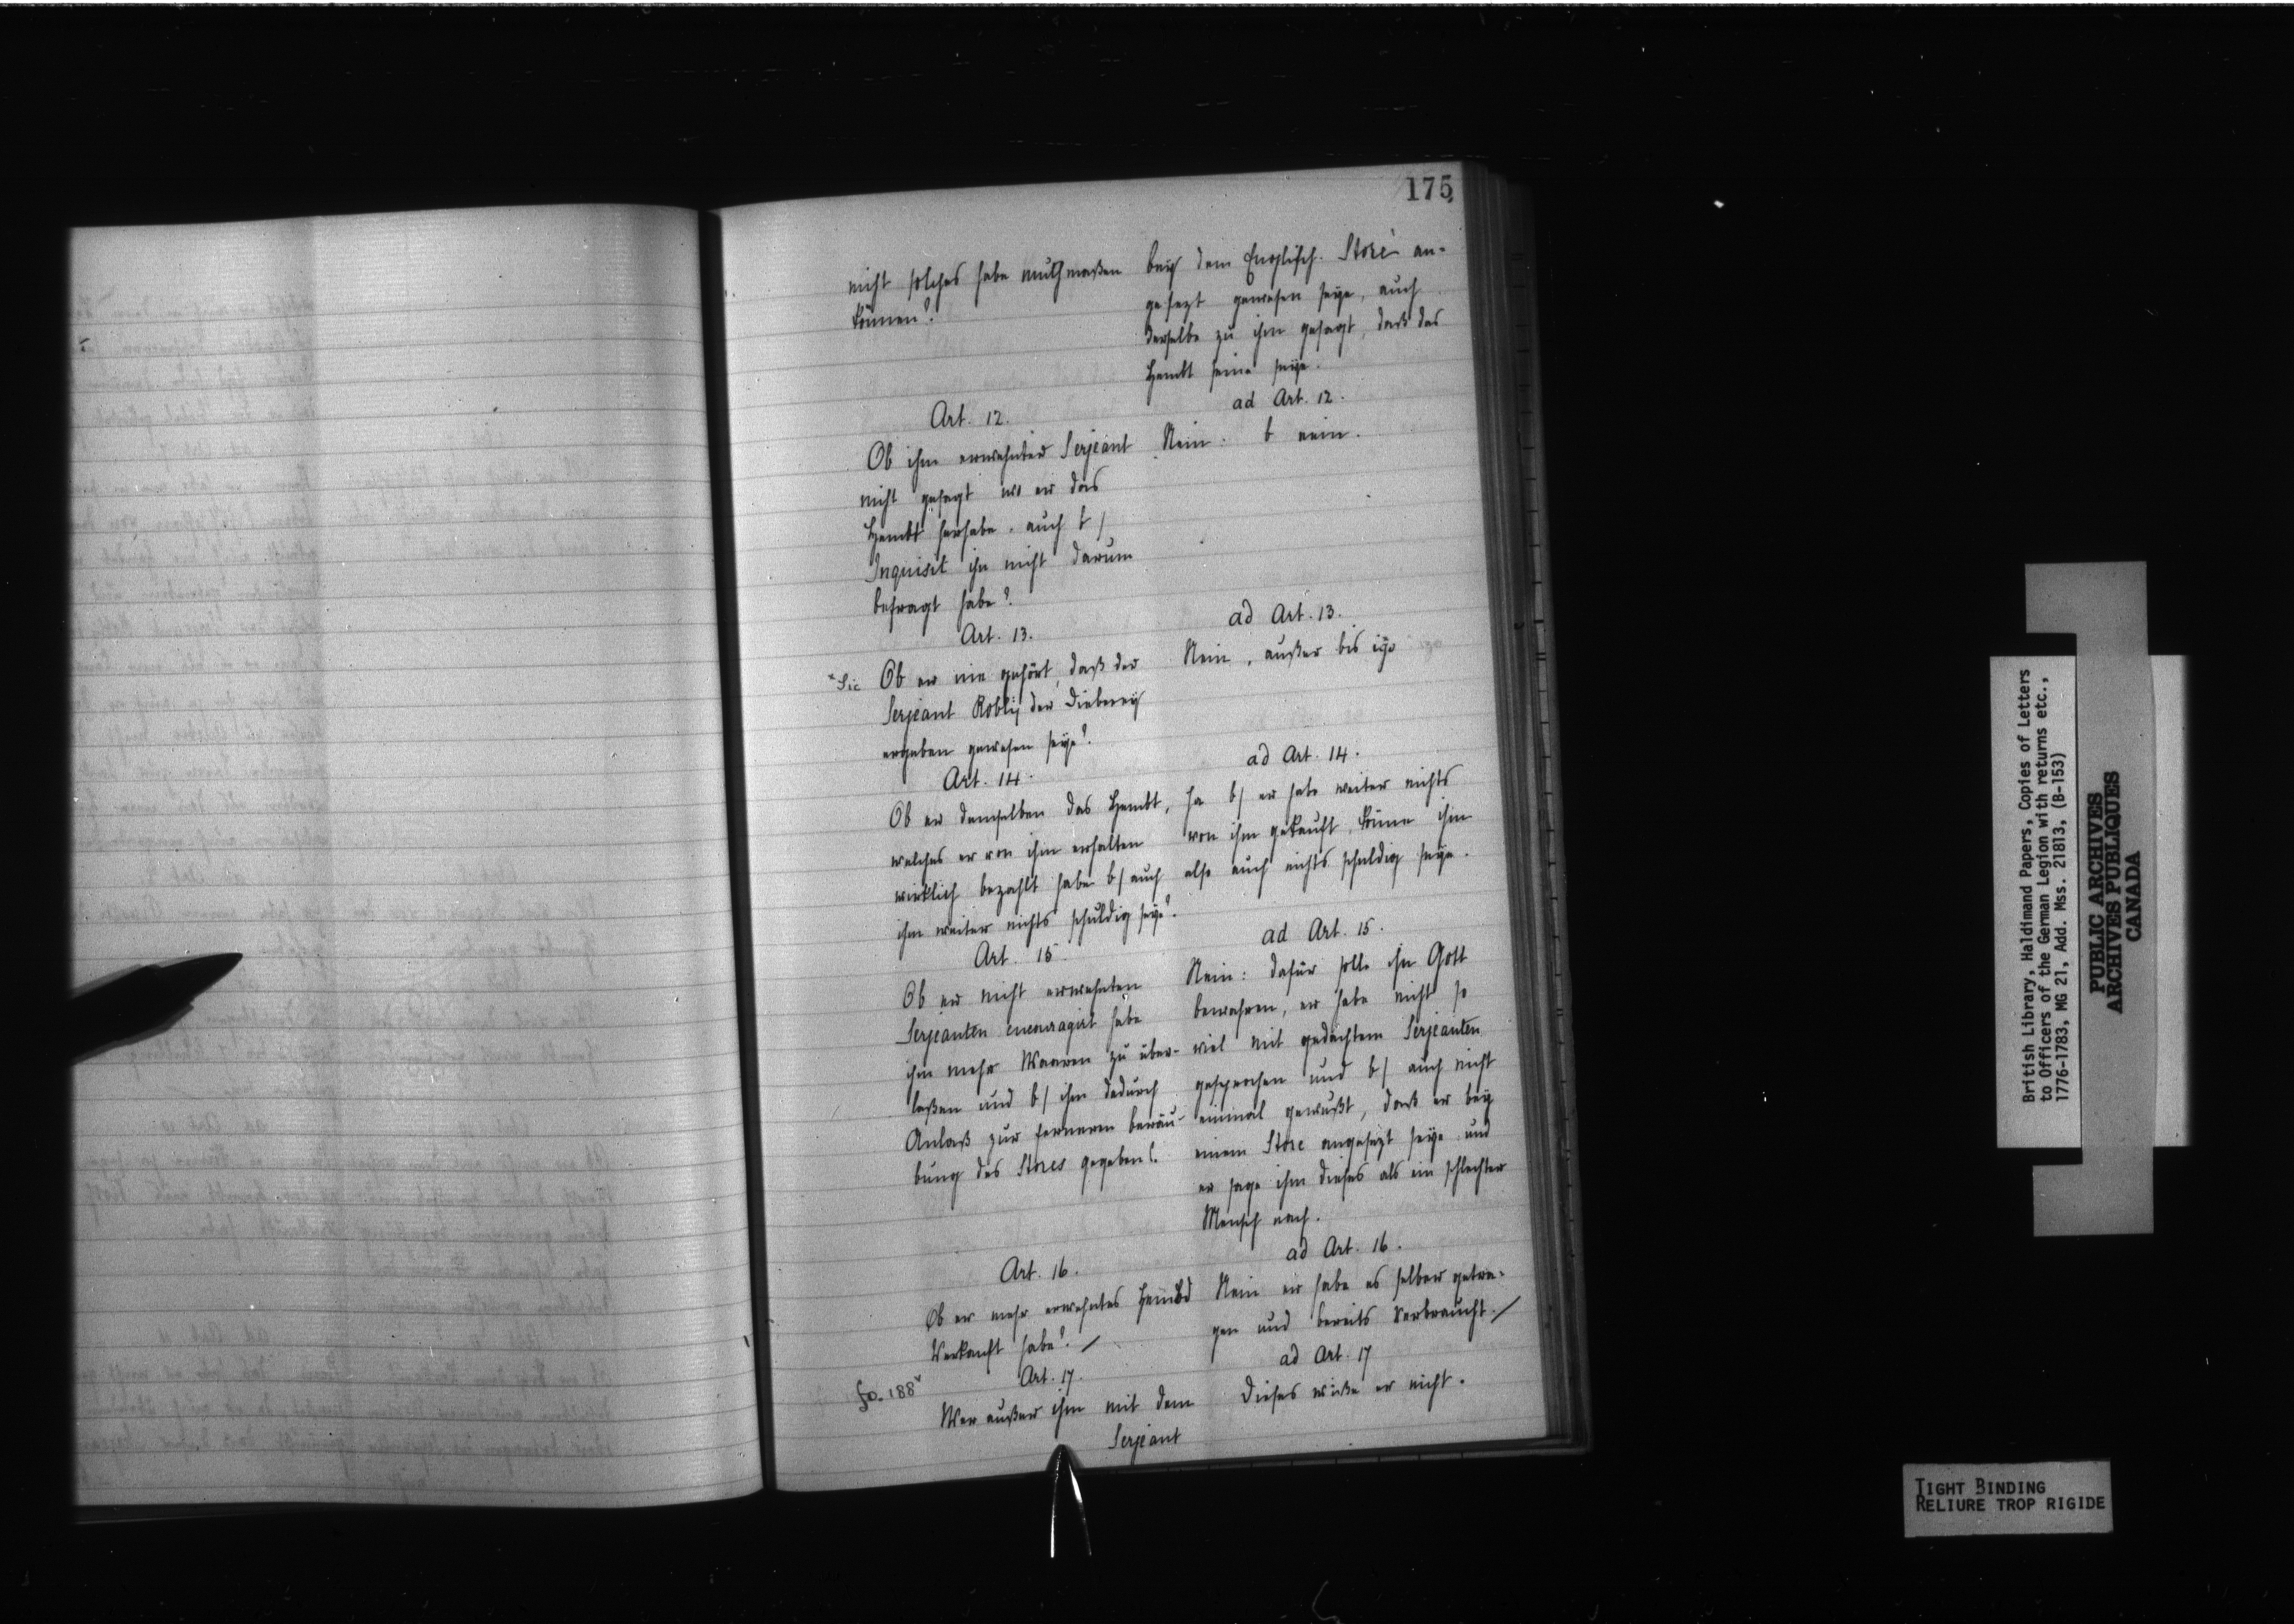 175
nicht solches habe muthmaßen
können?
bey dem Englisch. Store an-
gesezt gewesen seye, auch
derselbe zu ihm gesagt, daß das
Hembt seine seye.
Art. 12.
Ob ihm erwehnter Serjeant
nicht gesagt wo er das
Hembt herhabe, auch b/
Inquisit ihn nicht darum
befragt habe?
ad Art. 12.
Nein. b nein.
Art. 13.
*Sic
Ob er nie gehört, daß der
Serjeant Robly der Dieberey
ergeben gewesen seye?
ad Art. 13.
Nein, außer bis izo
Art. 14.
Ob er demselben das Hembt,
welches er von ihm erhalten
wirklich bezahlt habe b/ auch
ihm weiter nichts schuldig seye?
ad Art. 14.
Ja b/ er habe weiter nichts
von ihm gekauft, könne ihm
also auch nichts schuldig seye.
Art. 15.
Ob er nicht erwehnten
Serjeanten encouragirt habe
ihm mehr Waaren zu über-
laßen und b/ ihm dadurch
Anlaß zur ferneren beräu-
bung des Stores gegeben?
ad Art. 15.
Nein: dafür solle ihn Gott
bewahren, er habe nicht so
viel mit gedachtem Serjeanten
gesprochen und b/ auch nicht
einmal gewußt, daß er bey
einem Store angesezt seye und
er sage ihm dieses als ein schlechter
Mensch nach.
Art. 16.
Ob er mehr erwehntes Hembd
Verkauft habe? /
ad Art. 16.
Nein er habe es selber getra-
gen und bereits Verbraucht. /
fo. 188v
Art. 17.
Wer außer ihm mit dem
Serjeant
ad Art. 17
Dieses wiße er nicht.
British Library, Haldimand Papers, Copies of Letters
to Officers of the German Legion with returns etc.,
1776-1783, MG 21, Add. Mss. 21813, (B-153)
PUBLIC ARCHIVES
ARCHIVES PUBLIQUES
CANADA
TIGHT BINDING
RELIURE TROP RIGIDE